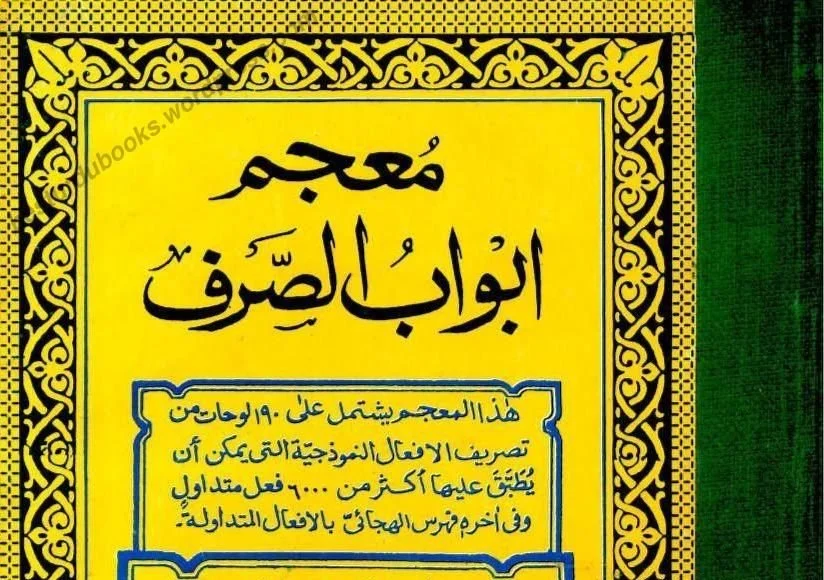 مُعجم
ابْوابُ الصَّرف
هذا المعجم يشتمل على ١٩٠ لوحات من
تصريف الافعال النموذجيّة التى يمكن أن
يُطَبَّقَ عليها أكثر من ٦٠٠٠ فعل متداولٍ
وفى اٰخره فهرس الهجائىّ بالافعال المتداولة.